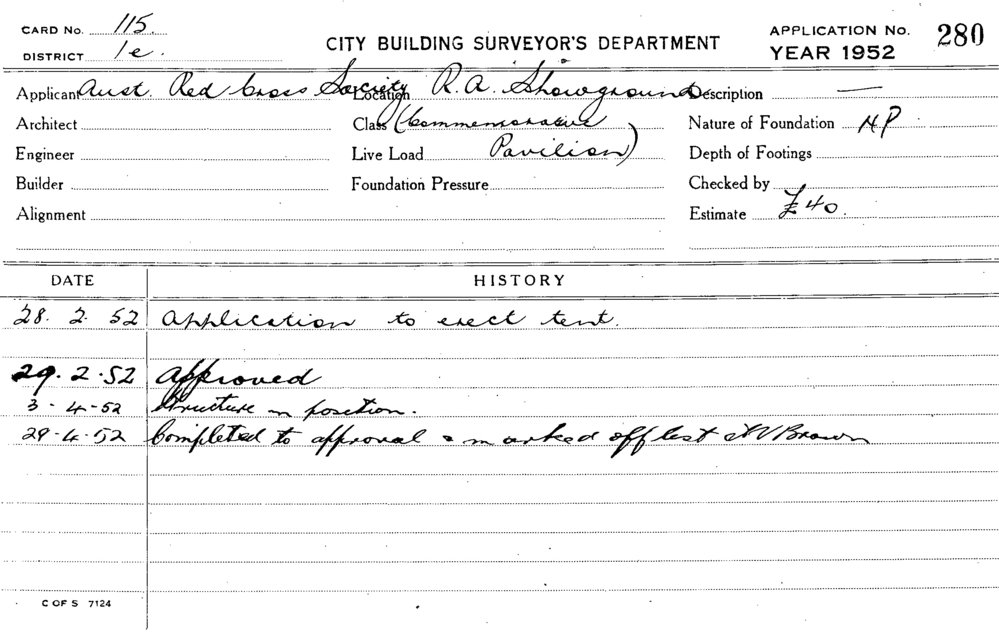 CARD No. 115.
DISTRICT 1e.
CITY BUILDING SURVEYOR'S DEPARTMENT
APPLICATION No. 280
YEAR 1952
Applicant Aust. Red Cross Society Location R.A. Showground Description —
Architect Class (Commemorative Nature of Foundation NP
Engineer Live Load Pavilion) Depth of Footings
Builder Foundation Pressure Checked by
Alignment Estimate £40.
DATE HISTORY
28. 2. 52 Application to erect tent.
29. 2. 52 Approved
3-4-52 Structure in position.
29-4-52 Completed to approval & marked off list Brown
C OF S 7124